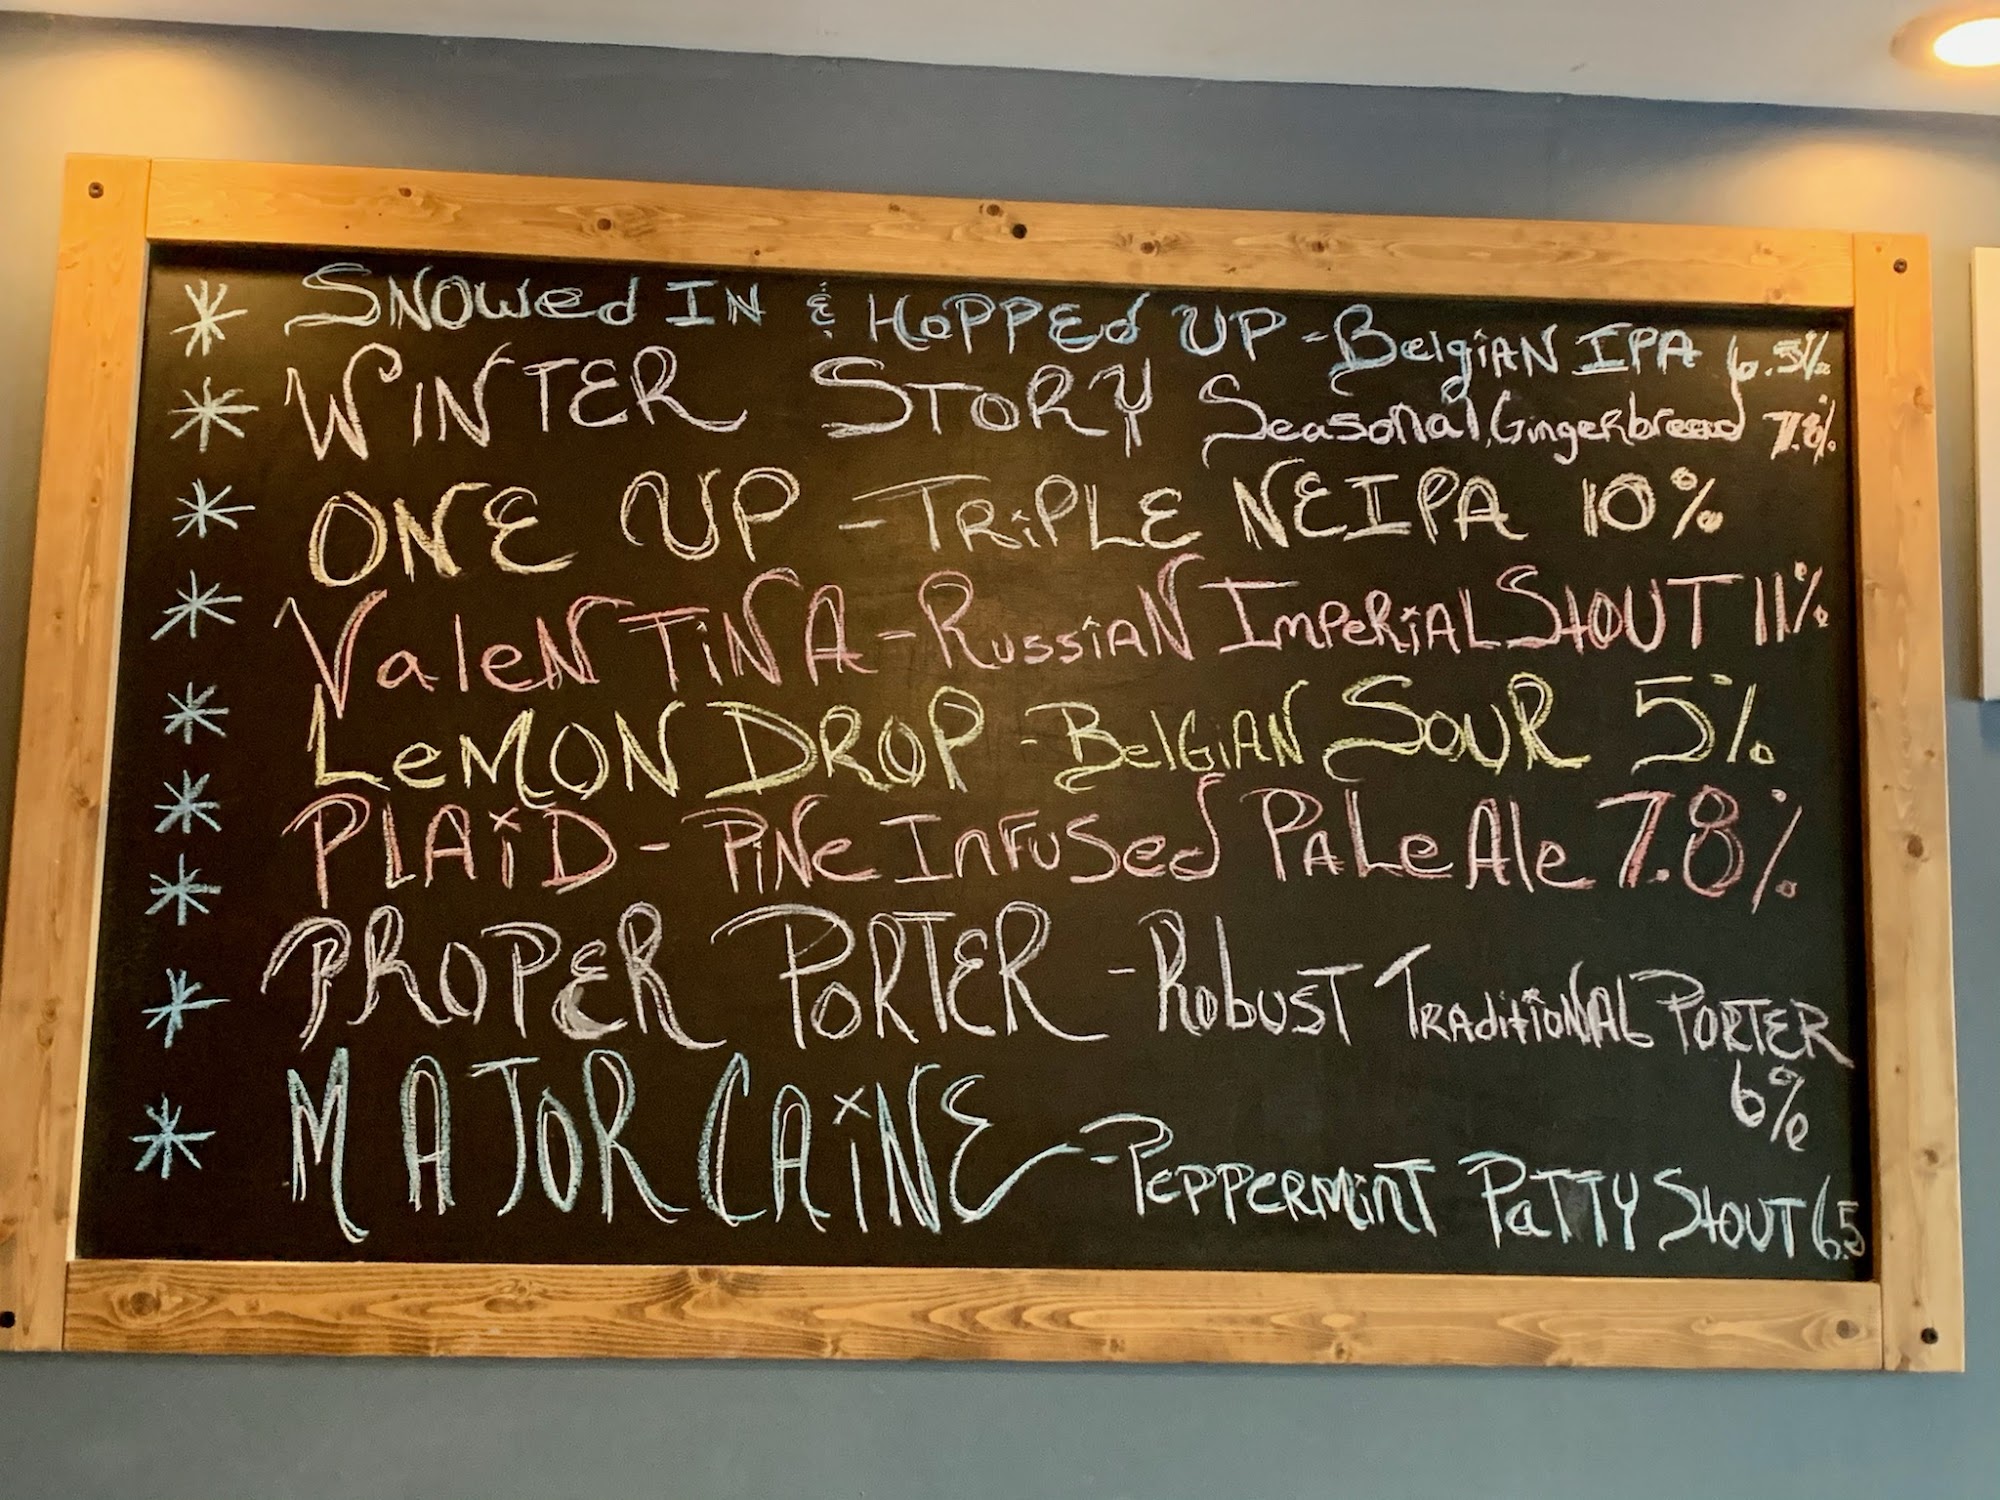 SNOWed IN & HOPPEd UP - BelgiAN IPA 6.5%
WINTER STORY Seasonal, Gingerbread 7.8%
ONE UP - TRiPLE NEIPA 10%
ValeNTiNA - RussiAN IMPeRiAL StOUT 11%
LeMON DROP - BelGiAN SOUR 5%
PLAiD - PiNe InFUSed PALe Ale 7.8%
PROPER PORTER - RobUST TRAditiONAL PORTER
6%
MAJOR CAiNE - PePPERMiNT PaTTY StOUT 6.5